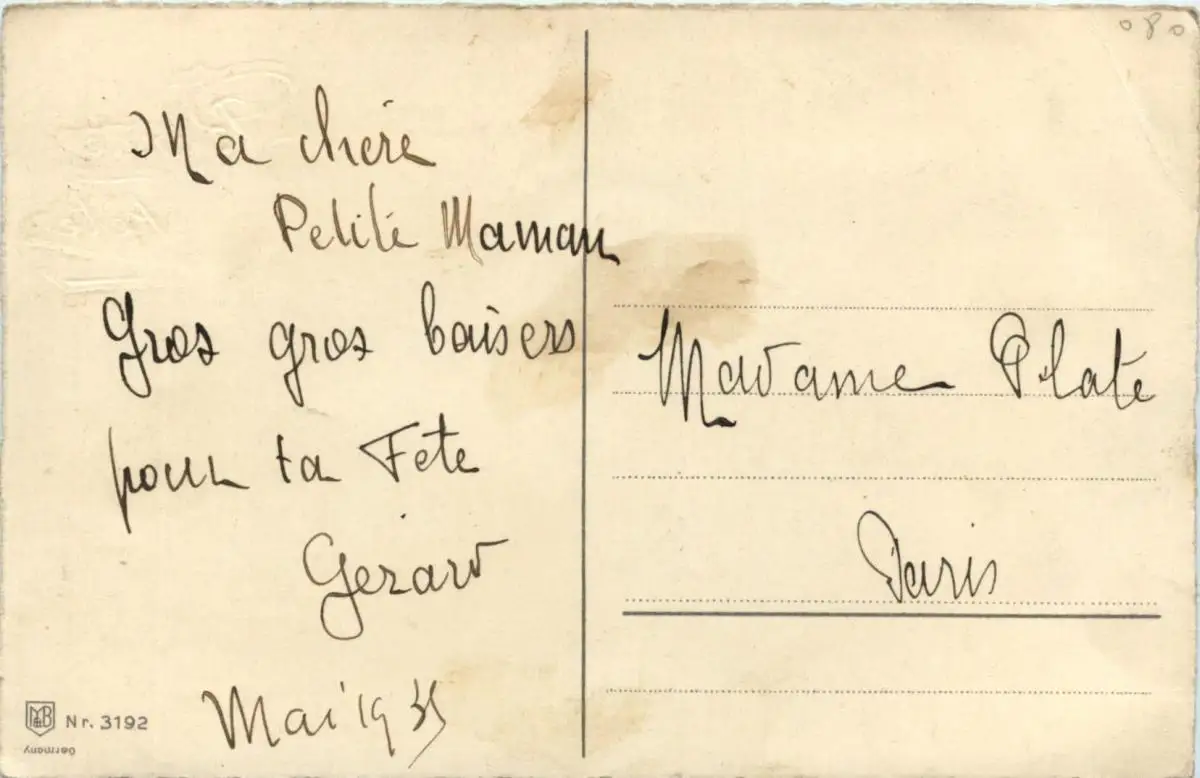 Ma chère
Petite Maman
Gros gros baisers
pour ta Fête
Gérard
Mai 1935
M&B Nr. 3192
Germany
080
Madame Plate
Paris